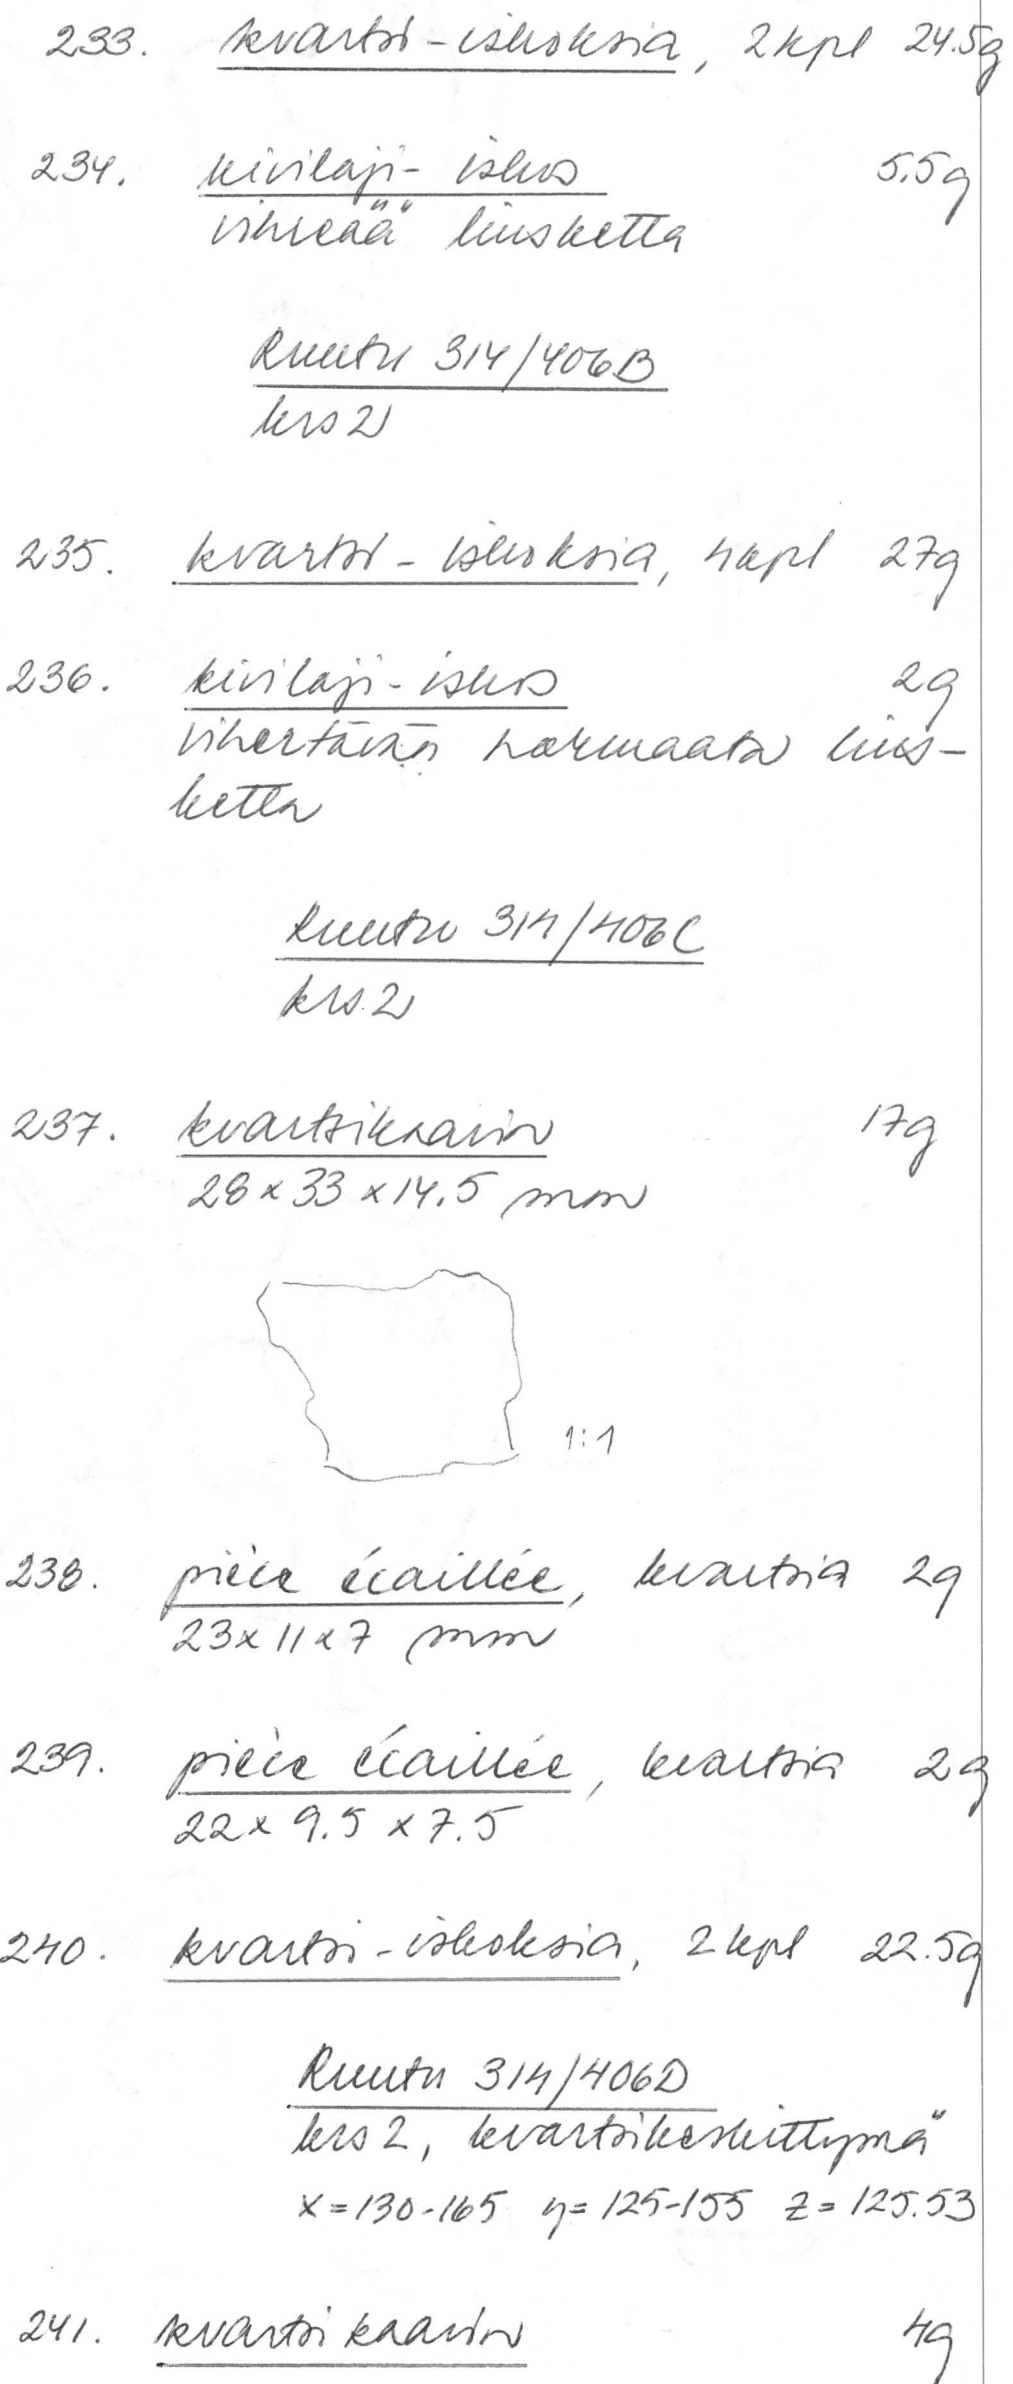 233. kvartsi-iskoksia, 2kpl 24.5g
234. kivilaji-iskos 5.5g
vihreää liusketta
Ruutu 314/406B
krs 2
235. kvartsi-iskoksia, 4kpl 27g
236. kivilaji-iskos 2g
vihertävän harmaata lius-
ketta
Ruutu 314/406C
krs.2
237. kvartsikaavin 17g
28 x 33 x 14.5 mm
1:1
238. pièce écaillée, kvartsia 2g
23 x 11 x 7 mm
239. pièce écaillée, kvartsia 2g
22 x 9.5 x 7.5
240. kvartsi-iskoksia, 2kpl 22.5g
Ruutu 314/406D
krs 2, kvartsikeskittymä
x=130-165 y=125-155 z=125.53
241. kvartsikaavin 4g